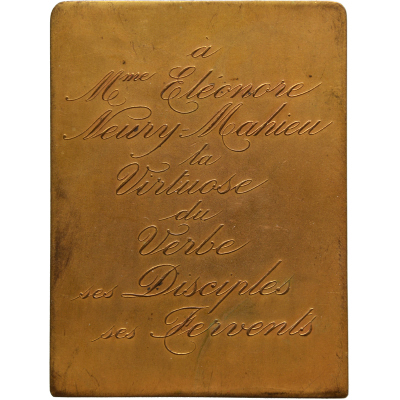 à
Mme Eléonore
Neury-Mahieu
la
Virtuose
du
Verbe
ses Disciples
ses Fervents